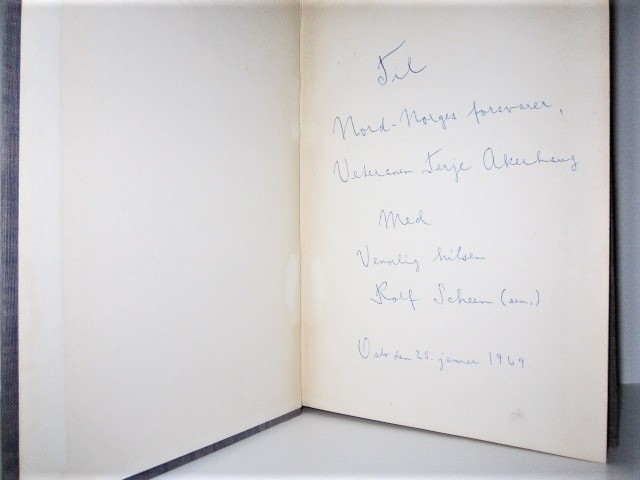 Til
Nord-Norges forsvarer,
Veteranen Terje Akerhaug
Med
Vennlig hilsen
Rolf Scheen (sen.)
Oslo den 25. januar 1969